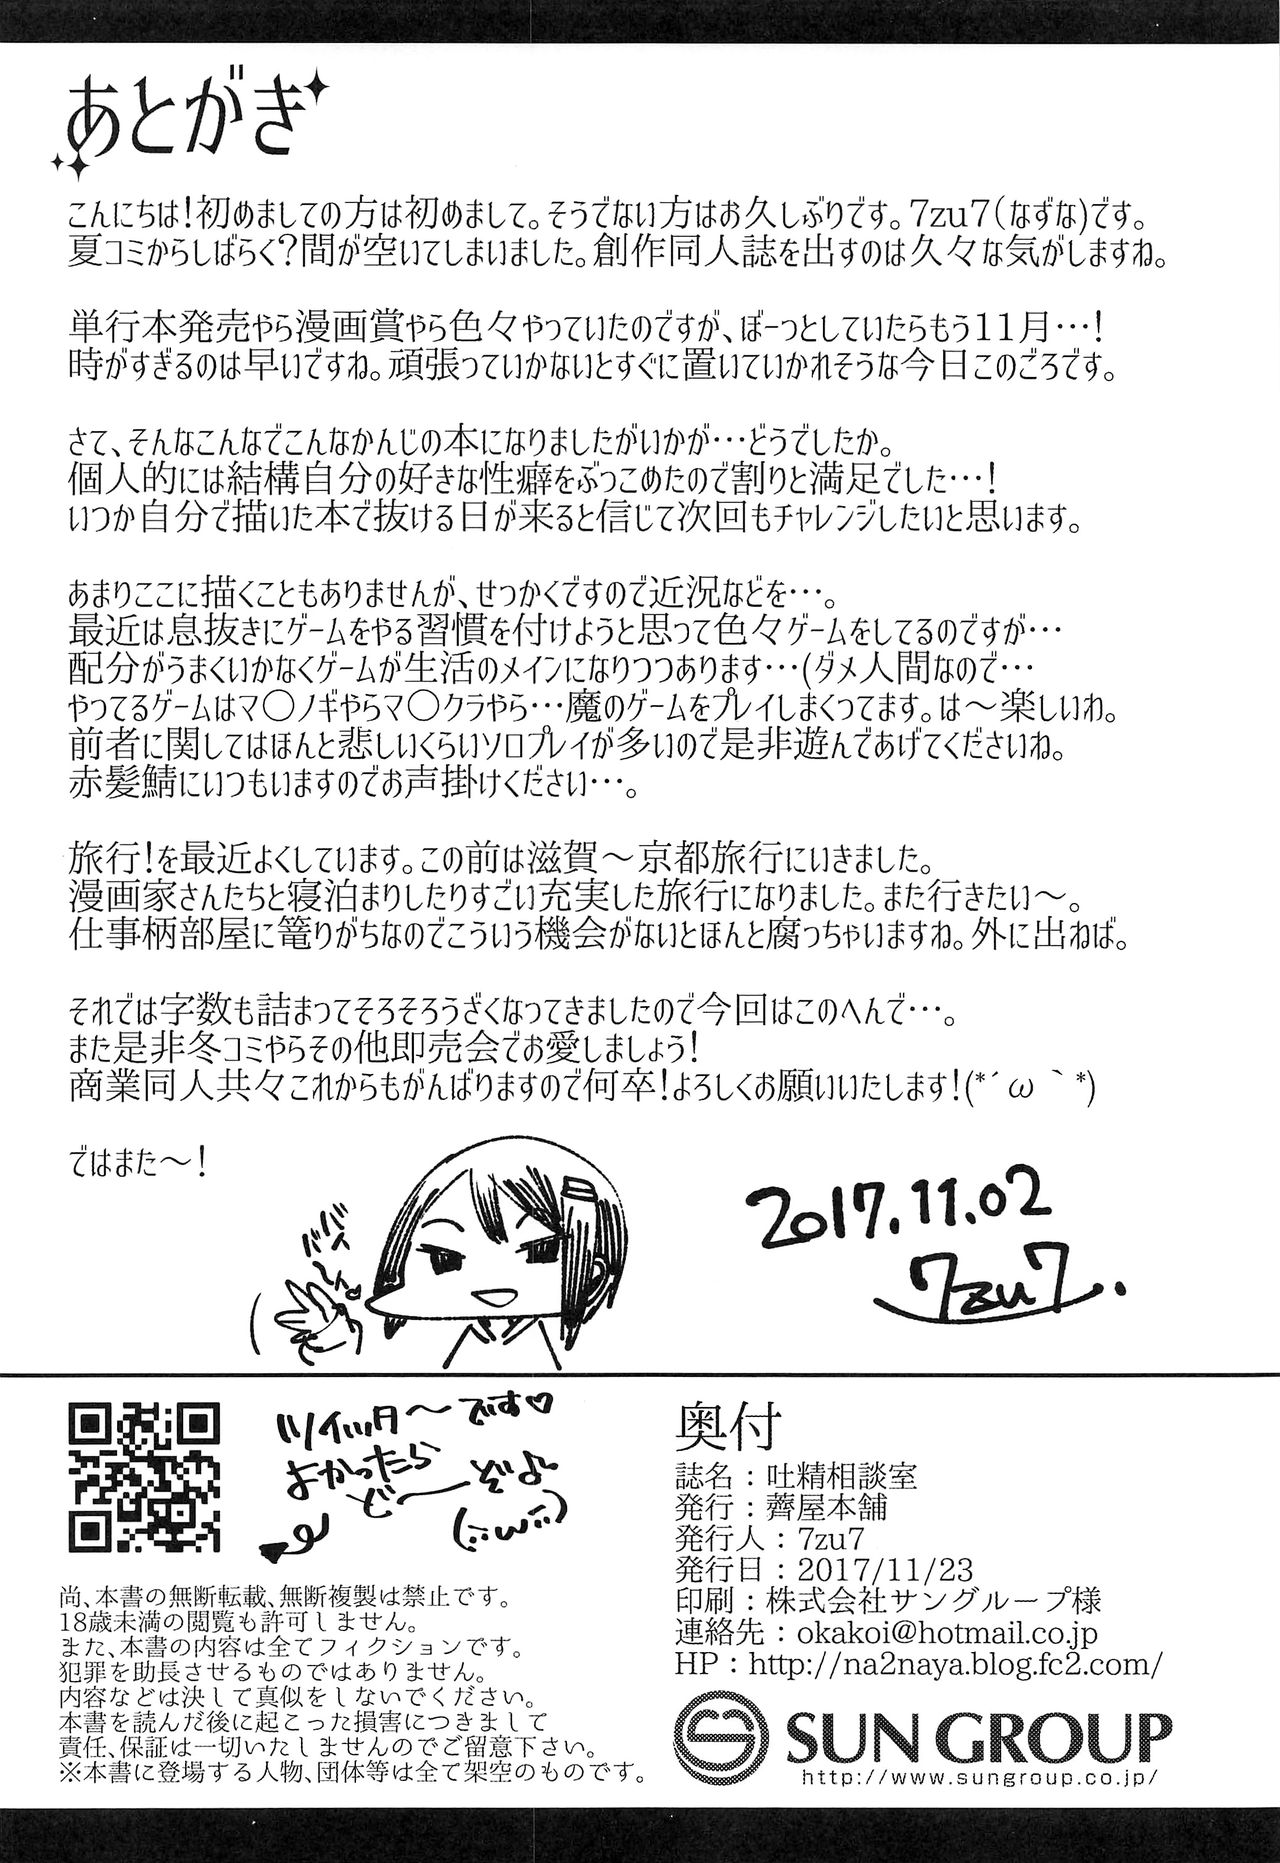 あとがき
こんにちは！初めましての方は初めまして。そうでない方はお久しぶりです。7zu7（なずな）です。
夏コミからしばらく？間が空いてしまいました。創作同人誌を出すのは久々な気がしますね。
単行本発売やら漫画賞やら色々やっていたのですが、ぼーっとしていたらもう11月…！
時がすぎるのは早いですね。頑張っていかないとすぐに置いていかれそうな今日このごろです。
さて、そんなこんなでこんなかんじの本になりましたがいかが…どうでしたか。
個人的には結構自分の好きな性癖をぶっこめたので割りと満足でした…！
いつか自分で描いた本で抜ける日が来ると信じて次回もチャレンジしたいと思います。
あまりここに描くこともありませんが、せっかくですので近況などを…。
最近は息抜きにゲームをやる習慣を付けようと思って色々ゲームをしてるのですが…
配分がうまくいかなくゲームが生活のメインになりつつあります…（ダメ人間なので…
やってるゲームはマ〇ノギやらマ〇クラやら…魔のゲームをプレイしまくってます。は～楽しいわ。
前者に関してはほんと悲しいくらいソロプレイが多いので是非遊んであげてくださいね。
赤髪鯖にいつもいますのでお声掛けください…。
旅行！を最近よくしています。この前は滋賀～京都旅行にいきました。
漫画家さんたちと寝泊まりしたりすごい充実した旅行になりました。また行きたい～。
仕事柄部屋に篭りがちなのでこういう機会がないとほんと腐っちゃいますね。外に出ねば。
それでは字数も詰まってそろそろうざくなってきましたので今回はこのへんで…。
また是非冬コミやらその他即売会でお愛しましょう！
商業同人共々これからもがんばりますので何卒！よろしくお願いいたします！(*´ω｀*)
ではまた～！
バイバ～イ
2017.11.02
7zu7.
ツイッタ～です♡
よかったら
ど～ぞよ
(:3ω:3)
奥付
誌名：吐精相談室
発行：薺屋本舗
発行人：7zu7
発行日：2017/11/23
印刷：株式会社サングループ様
連絡先：okakoi@hotmail.co.jp
HP：http://na2naya.blog.fc2.com/
SUN GROUP
http://www.sungroup.co.jp/
尚、本書の無断転載、無断複製は禁止です。
18歳未満の閲覧も許可しません。
また、本書の内容は全てフィクションです。
犯罪を助長させるものではありません。
内容などは決して真似をしないでください。
本書を読んだ後に起こった損害につきまして
責任、保証は一切いたしませんのでご留意下さい。
※本書に登場する人物、団体等は全て架空のものです。